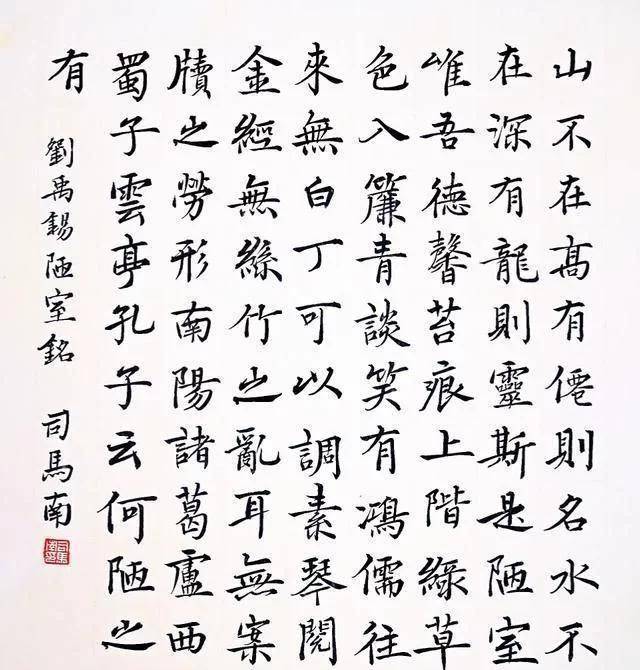 山不在髙有僊則名水不
在深有龍則靈斯是陋室
唯吾德馨苔痕上階綠草
色入簾青談笑有鴻儒往
來無白丁可以調素琴閱
金經無絲竹之亂耳無案
牘之勞形南陽諸葛廬西
蜀子雲亭孔子云何陋之
有
劉禹錫陋室銘 司馬南